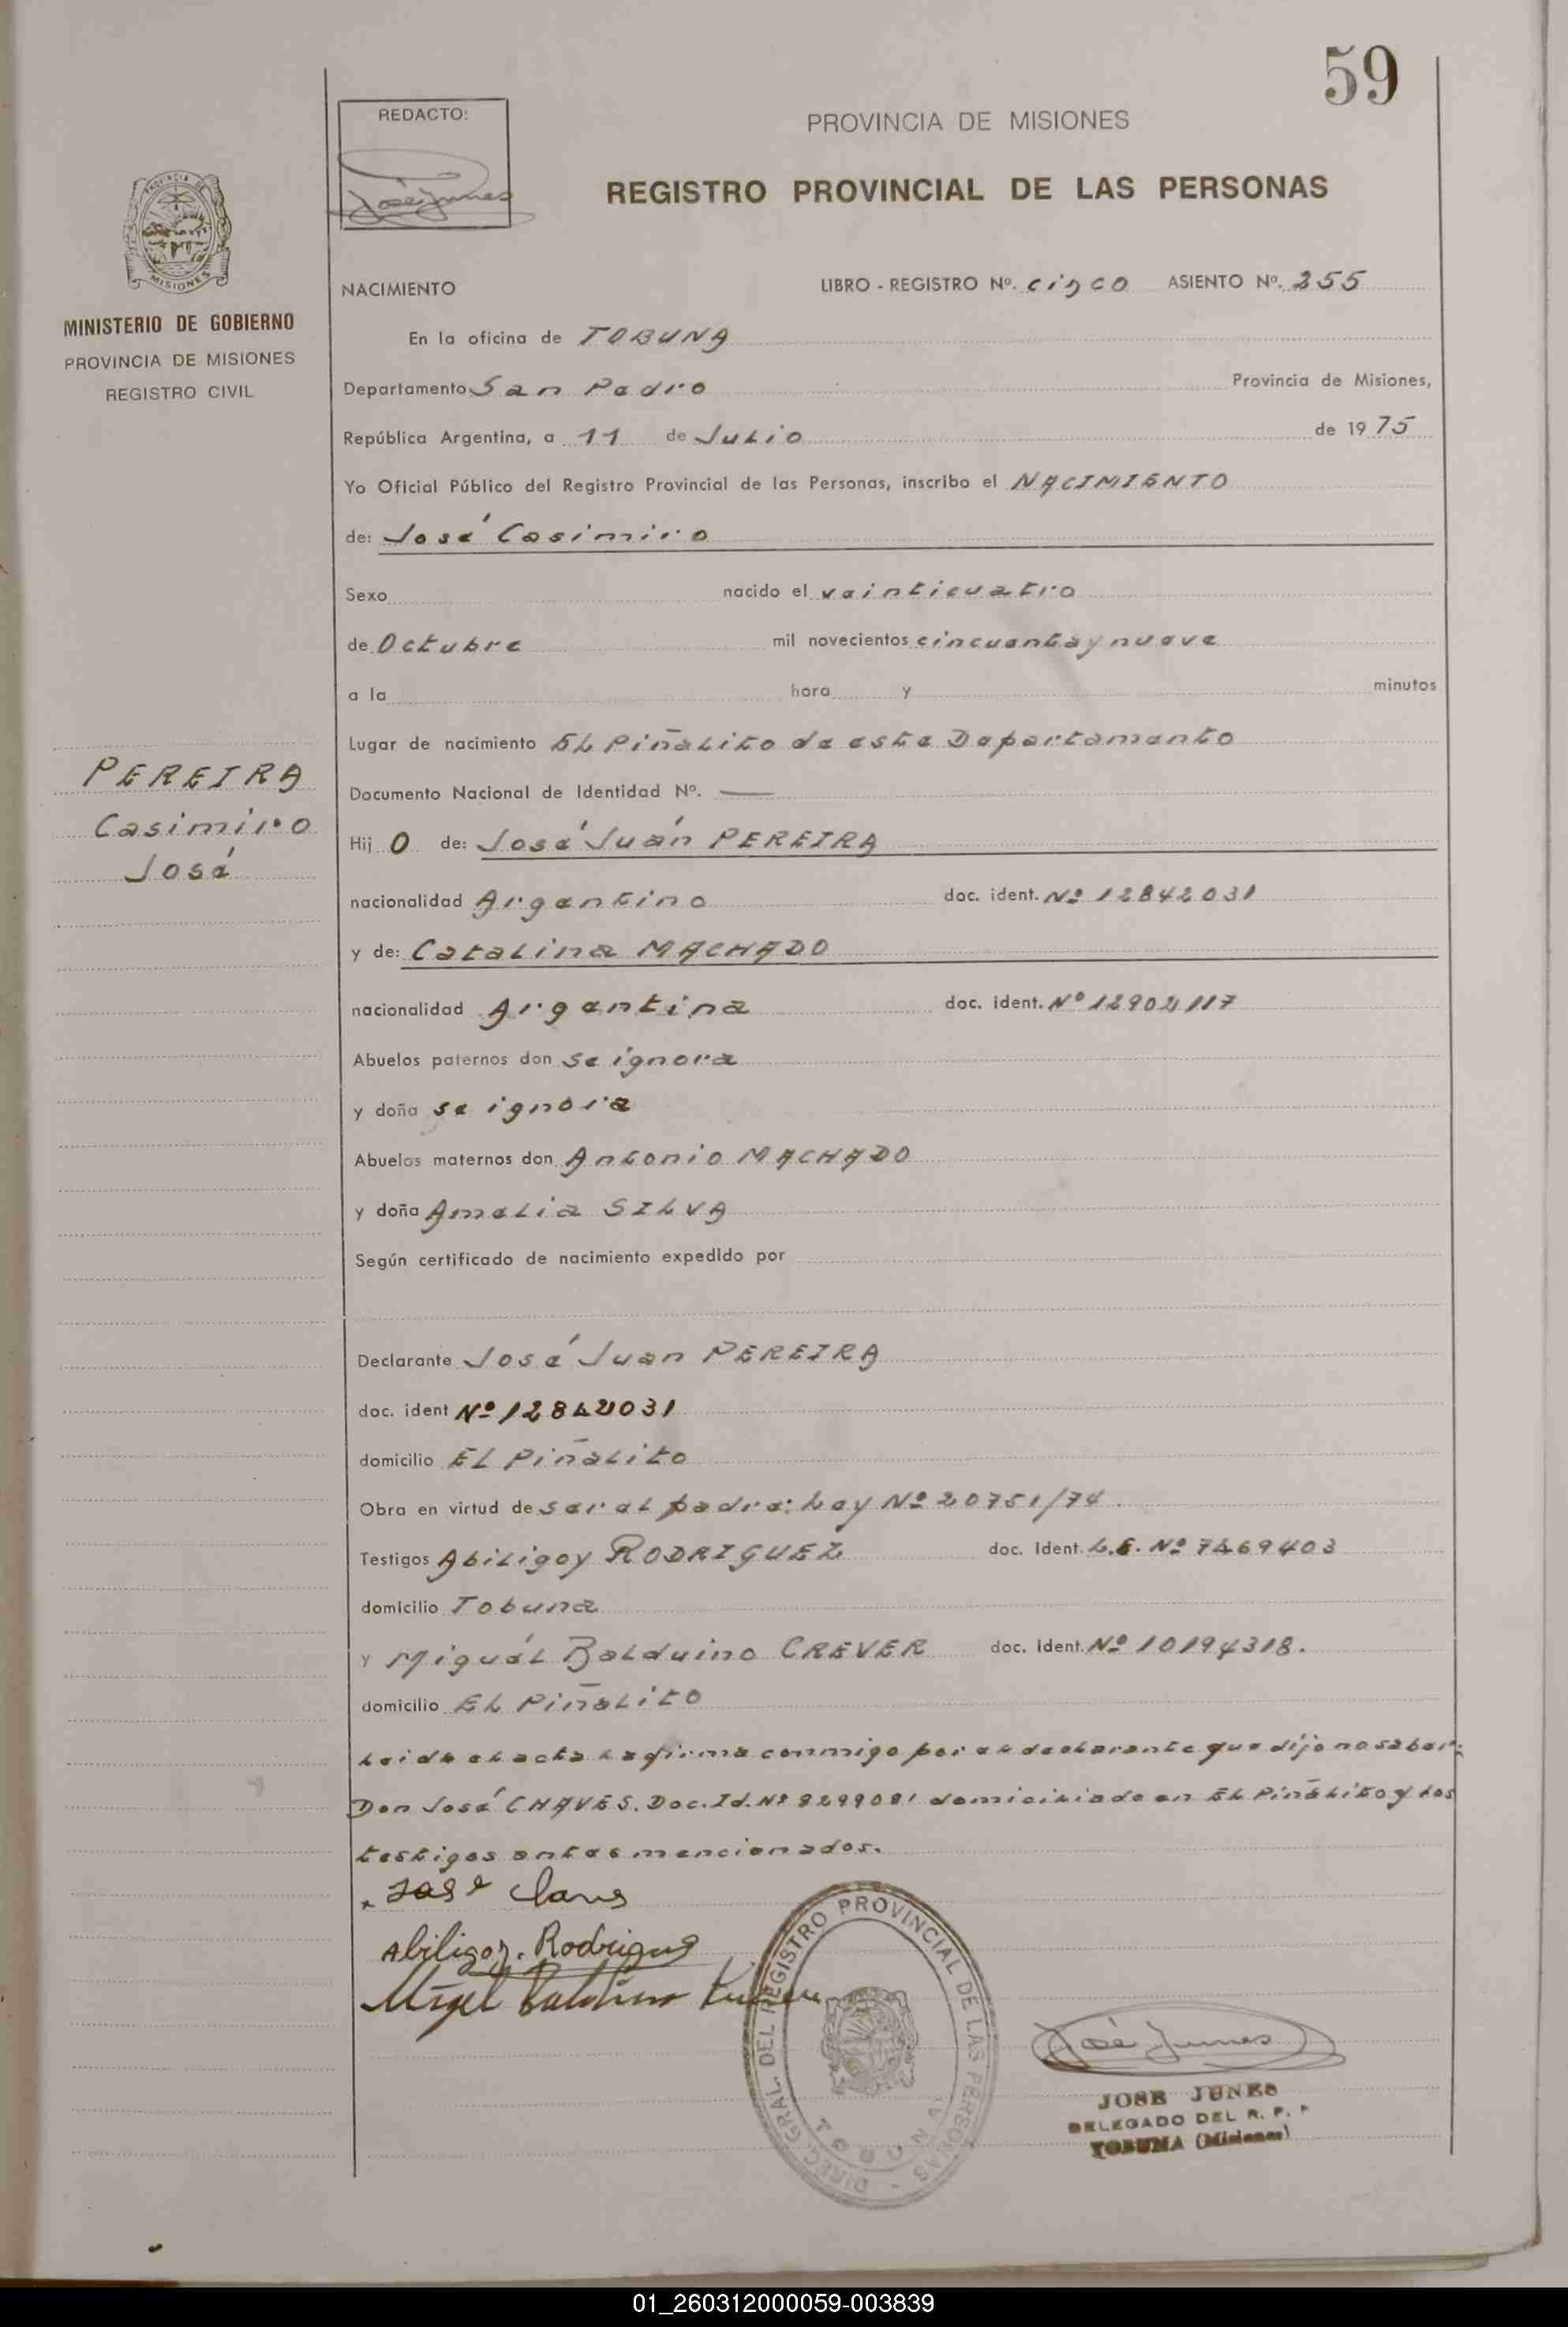 59
REDACTO:
José Junes
PROVINCIA DE MISIONES
REGISTRO PROVINCIAL DE LAS PERSONAS
PROVINCIA DE
MISIONES
MINISTERIO DE GOBIERNO
PROVINCIA DE MISIONES
REGISTRO CIVIL
NACIMIENTO LIBRO - REGISTRO Nº. cinco ASIENTO Nº. 255
En la oficina de TOBUNA
Departamento San Pedro Provincia de Misiones,
República Argentina, a 11 de Julio de 1975
Yo Oficial Público del Registro Provincial de las Personas, inscribo el NACIMIENTO
de: José Casimiro
Sexo nacido el veinticuatro
de Octubre mil novecientos cincuenta y nueve
a la hora y minutos
Lugar de nacimiento EL Piñalito de este Departamento
PEREIRA
Casimiro
José
Documento Nacional de Identidad Nº. —
Hij O de: José Juán PEREIRA
nacionalidad Argentino doc. ident. Nº 12842031
y de: Catalina MACHADO
nacionalidad Argentina doc. ident. Nº 12902117
Abuelos paternos don se ignora
y doña se ignora
Abuelos maternos don Antonio MACHADO
y doña Amalia SILVA
Según certificado de nacimiento expedido por
Declarante José Juan PEREIRA
doc. ident Nº 12842031
domicilio EL Piñalito
Obra en virtud de ser el padre: Ley Nº 20751/74.
Testigos Abiligoy RODRIGUEZ doc. Ident. L.E. Nº 7469403
domicilio Tobuna
y Miguél Balduino CREVER doc. Ident. Nº 10194318.
domicilio EL Piñalito
Leida el acta la firma conmigo por el declarante que dijo no saber:
Don José CHAVES. Doc. Id. Nº 8299081 domiciliado en EL Piñalito y los
testigos antes mencionados.
José Claves
Abiligoy. Rodrigues
Migel Balduino
DIREC. GRAL. DEL REGISTRO PROVINCIAL DE LAS PERSONAS -
TOBUNA
José Junes
JOSE JUNES
DELEGADO DEL R. P. P
TOBUNA (Misiones)
01_260312000059-003839